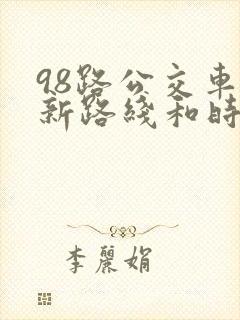 98路公交車
新路綫和時
李麗娟